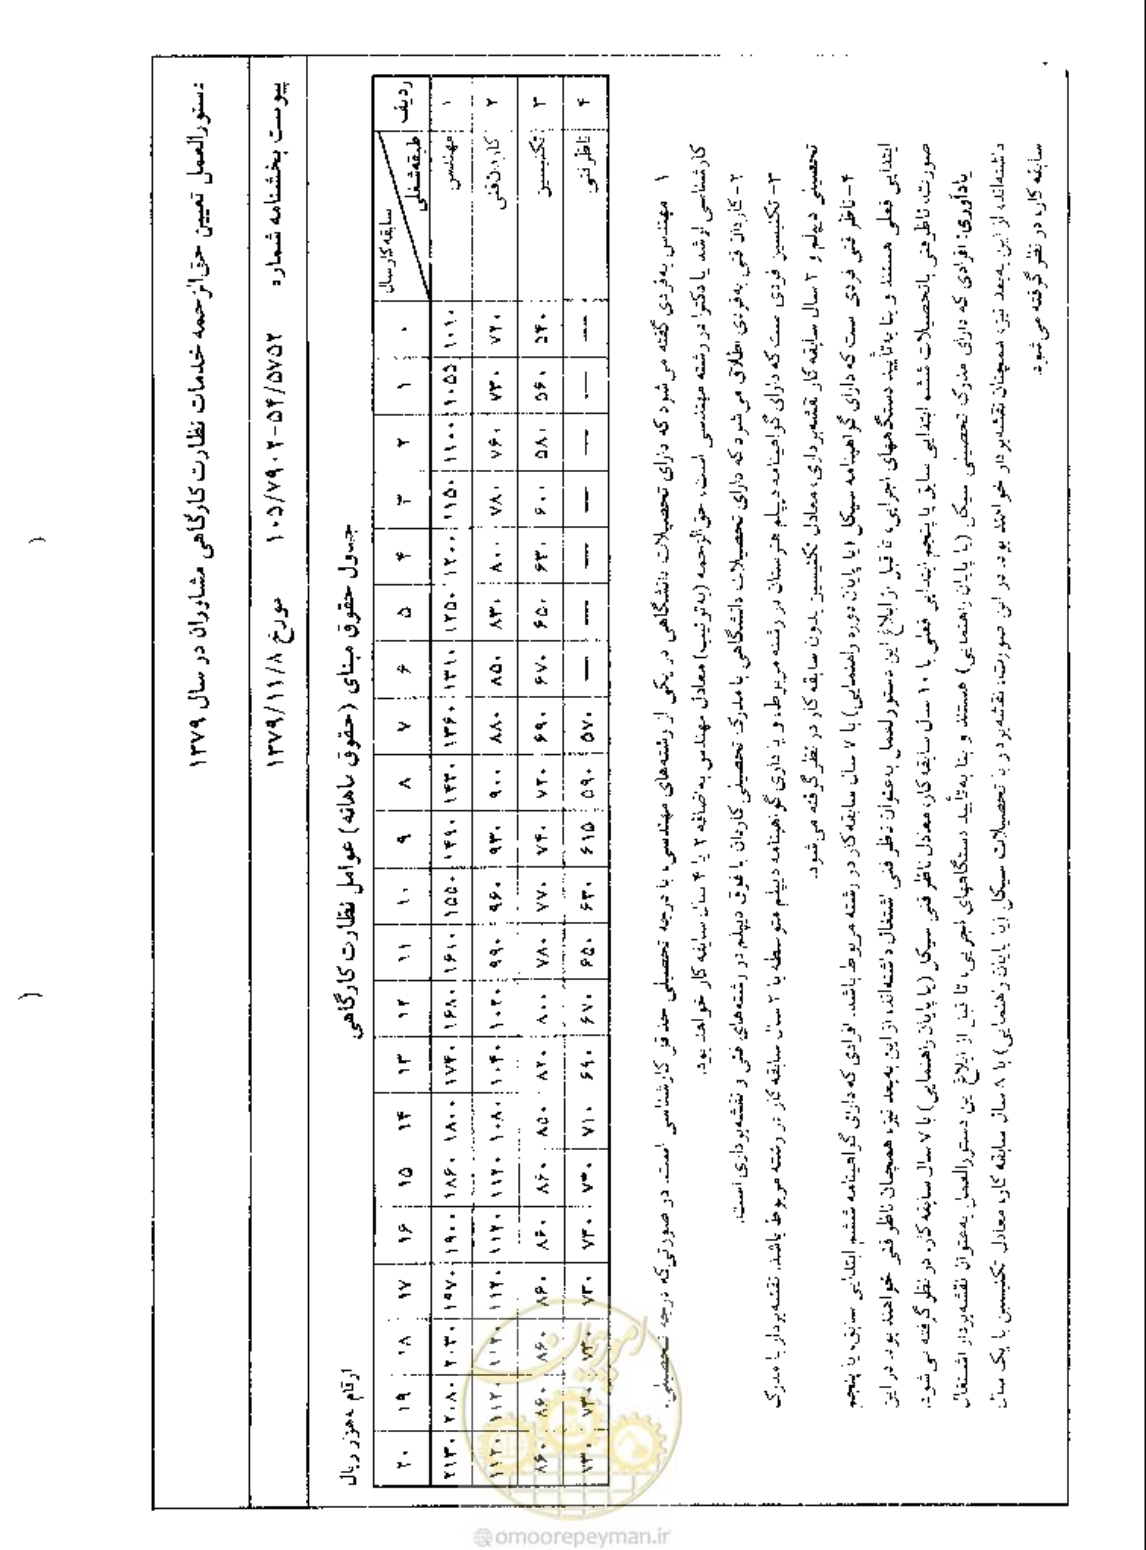 دستورالعمل تعیین حق‌الزحمه خدمات نظارت کارگاهی مشاوران در سال ۱۳۷۹
پیوست بخشنامه شماره ۱۰۵/۷۹۰۲-۵۴/۵۷۵۲ مورخ ۱۳۷۹/۱۱/۸
جدول حقوق مبنای (حقوق ماهانه) عوامل نظارت کارگاهی
ارقام به‌هزار ریال
ردیف طبقه‌شغلی سابقه‌کار-سال ۰ ۱ ۲ ۳ ۴ ۵ ۶ ۷ ۸ ۹ ۱۰ ۱۱ ۱۲ ۱۳ ۱۴ ۱۵ ۱۶ ۱۷ ۱۸ ۱۹ ۲۰
۱ مهندس ۱۰۱۰ ۱۰۵۵ ۱۱۰۰ ۱۱۵۰ ۱۲۰۰ ۱۲۵۰ ۱۳۱۰ ۱۳۶۰ ۱۴۳۰ ۱۴۹۰ ۱۵۵۰ ۱۶۱۰ ۱۶۸۰ ۱۷۴۰ ۱۸۰۰ ۱۸۶۰ ۱۹۰۰ ۱۹۷۰ ۲۰۳۰ ۲۰۸۰ ۲۱۳۰
۲ کاردان‌فنی ۷۲۰ ۷۳۰ ۷۶۰ ۷۸۰ ۸۰۰ ۸۳۰ ۸۵۰ ۸۸۰ ۹۰۰ ۹۳۰ ۹۶۰ ۹۹۰ ۱۰۲۰ ۱۰۴۰ ۱۰۸۰ ۱۱۲۰ ۱۱۲۰ ۱۱۲۰ ۱۱۲۰ ۱۱۲۰ ۱۱۲۰
۳ تکنیسین ۵۴۰ ۵۶۰ ۵۸۰ ۶۰۰ ۶۳۰ ۶۵۰ ۶۷۰ ۶۹۰ ۷۲۰ ۷۴۰ ۷۷۰ ۷۸۰ ۸۰۰ ۸۲۰ ۸۵۰ ۸۶۰ ۸۶۰ ۸۶۰ ۸۶۰ ۸۶۰ ۸۶۰
۴ ناظرفنی — — — — — — — ۵۷۰ ۵۹۰ ۶۱۵ ۶۳۰ ۶۵۰ ۶۷۰ ۶۹۰ ۷۱۰ ۷۳۰ ۷۳۰ ۷۳۰ ۷۳۰ ۷۳۰ ۷۳۰
۱ مهندس به‌فردی گفته می‌شود که دارای تحصیلات دانشگاهی در یکی از رشته‌های مهندسی، با درجه تحصیلی حداقل کارشناسی است. در صورتی‌که درجه تحصیلی،
کارشناسی ارشد یا دکترا در رشته مهندسی است، حق‌الزحمه (به‌ترتیب) معادل مهندس به اضافه ۲ یا ۴ سال سابقه کار خواهد بود.
۲- کاردان فنی به‌فردی اطلاق می‌شود که دارای تحصیلات دانشگاهی با مدرک تحصیلی کاردان یا فوق دیپلم در رشته‌های فنی و نقشه‌برداری است.
۳- تکنیسین فردی ست که دارای گواهینامه دیپلم هنرستان در رشته مربوط، و یا دارای گواهینامه دیپلم متوسطه با ۲ سال سابقه کار در رشته مربوط باشد. نقشه‌بردار با مدرک
تحصیلی دیپلم و ۲ سال سابقه کار نقشه‌برداری، معادل تکنیسین بدون سابقه کار در نظر گرفته می‌شود.
۴- ناظر فنی فردی ست که دارای گواهینامه سیکل (یا پایان دوره راهنمایی) با ۷ سال سابقه کار در رشته مربوط باشد. افرادی که دارای گواهینامه ششم ابتدایی سابق، یا پنجم
ابتدایی فعلی هستند و بنا به‌تأیید دستگاههای اجرایی، تا قبل از ابلاغ این دستورالعمل به‌عنوان ناظر فنی اشتغال داشته‌اند، از این به‌بعد نیز، همچنان ناظر فنی خواهند بود. در این
صورت، ناظرفنی باتحصیلات ششم ابتدایی سابق یا پنجم ابتدایی فعلی با ۱۰ سال سابقه کار، معادل ناظر فنی سیکل (یا پایان راهنمایی) با ۷ سال سابقه کار، در نظر گرفته می‌شود.
یادآوری: افرادی که دارای مدرک تحصیلی سیکل (یا پایان راهنمایی) هستند و بنا به‌تأیید دستگاههای اجرایی، تا قبل از ابلاغ این دستورالعمل به‌عنوان نقشه‌بردار اشتغال
داشته‌اند، از این به‌بعد نیز، همچنان نقشه‌بردار خواهند بود. در این صورت، نقشه‌بردار با تحصیلات سیکل (یا پایان راهنمایی) با ۸ سال سابقه کار، معادل تکنیسین با یک سال
سابقه کار، در نظر گرفته می‌شود.
امورپیمان
omoorepeyman.ir